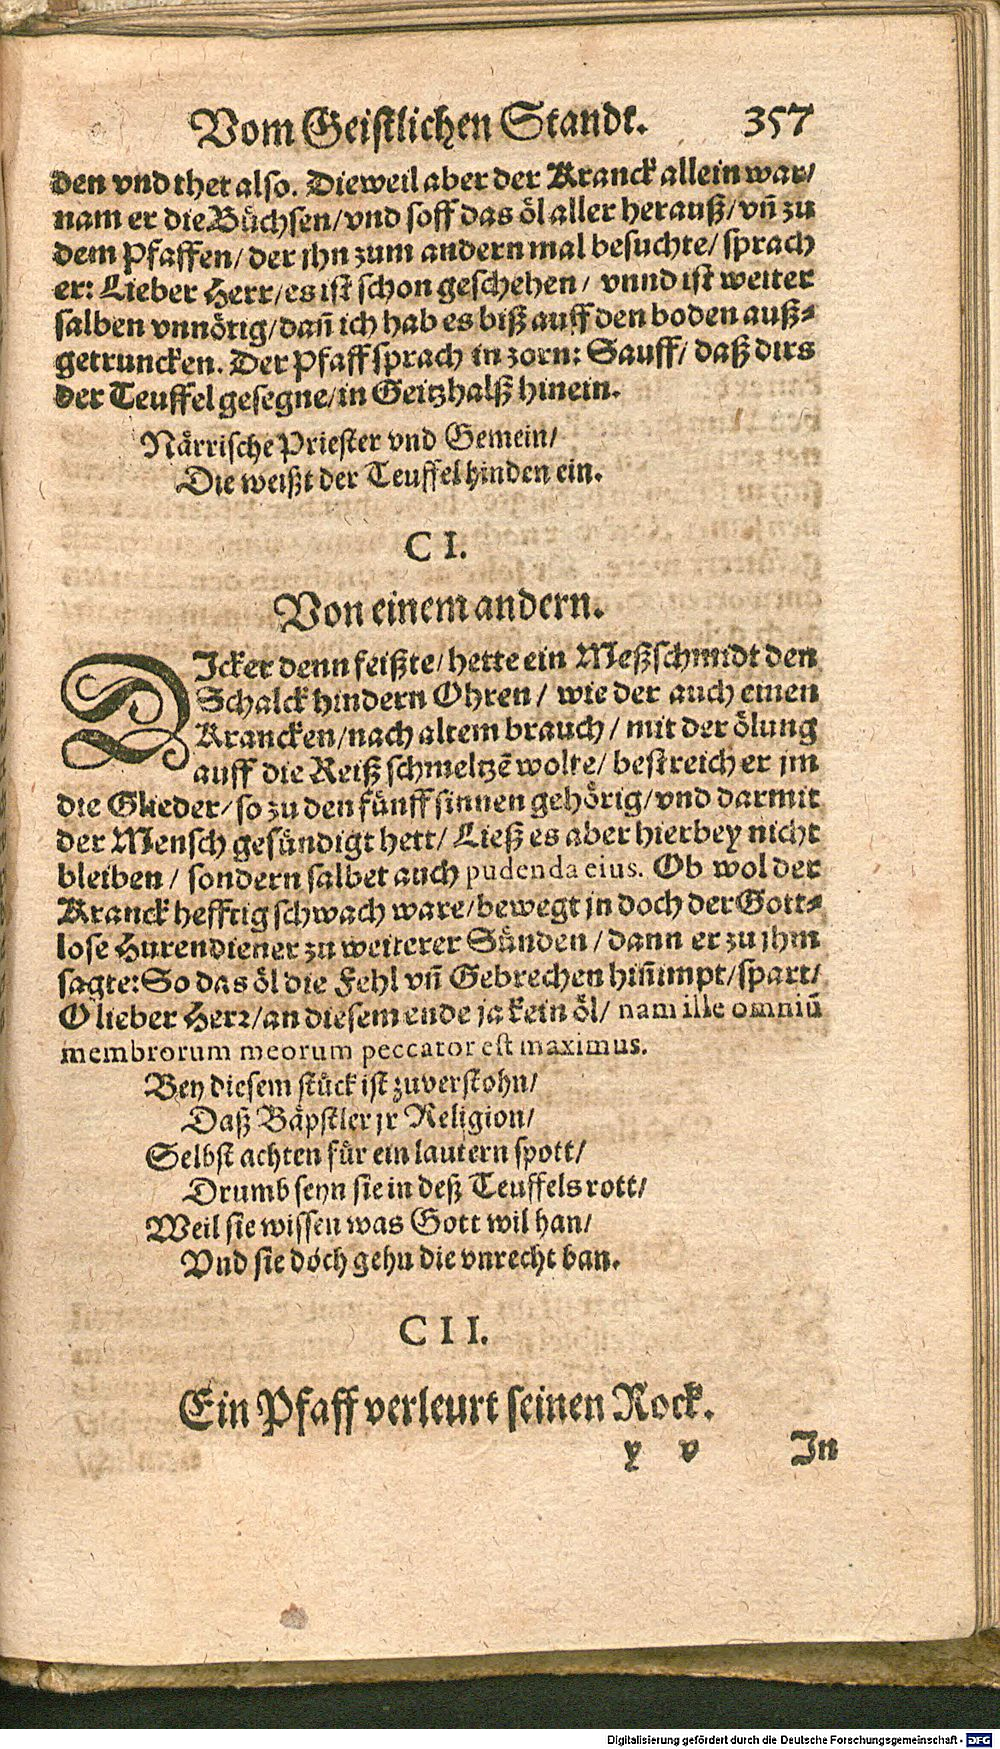 Vom Geistlichen Standt. 357
den vnd thet also. Dieweil aber der Kranck allein war/
nam er die Büchsen/ vnd soff das öl aller herauß/ vñ zu
dem Pfaffen/ der ihn zum andern mal besuchte/ sprach
er: Lieber Herr/ es ist schon geschehen/ vnnd ist weiter
salben vnnötig/ dañ ich hab es biß auff den boden auß-
getruncken. Der Pfaff sprach in zorn: Sauff/ daß dirs
der Teuffel gesegne/ in Geitzhalß hinein.
Närrische Priester vnd Gemein/
Die weißt der Teuffel hinden ein.
C I.
Von einem andern.
DIcker denn feißte/ hette ein Meßschmidt den
Schalck hindern Ohren/ wie der auch einen
Krancken/ nach altem brauch/ mit der ölung
auff die Reiß schmeltzē wolte/ bestreich er jm
die Glieder/ so zu den fünff sinnen gehörig/ vnd darmit
der Mensch gesündigt hett/ Ließ es aber hierbey nicht
bleiben/ sondern salbet auch pudenda eius. Ob wol der
Kranck hefftig schwach ware/ bewegt jn doch der Gott-
lose Hurendiener zu weiterer Sünden/ dann er zu jhm
sagte: So das öl die Fehl vñ Gebrechen hiñimpt/ spart/
O lieber Herr/ an diesem ende ja kein öl/ nam ille omniū
membrorum meorum peccator est maximus.
Bey diesem stück ist zuverstohn/
Daß Bäpstler jr Religion/
Selbst achten für ein lautern spott/
Drumb seyn sie in deß Teuffels rott/
Weil sie wissen was Gott wil han/
Vnd sie doch gehn die vnrecht ban.
C I I.
Ein Pfaff verleurt seinen Rock.
y v In
Digitalisierung gefördert durch die Deutsche Forschungsgemeinschaft - DFG